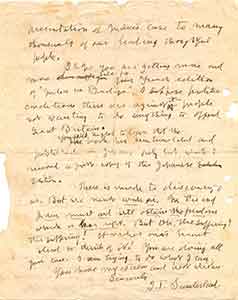 presentation of India's case to many
thousands of our leading thoughtful
people.
I hope you are getting more and
more your Japanese edition
of "India in Bondage". I suppose political
conditions there are against the people
not wanting to do anything to offend
Great Britain.
The book has been
published in Germany but I have not
received a copy of the Japanese
edition.
There is much to discourage
us. But we must work on. In the end
India must and will obtain the freedom
which is her right. But Oh! the suffering!
the suffering! It makes one's heart
bleed to think of it! You are doing all
you can. I am trying to do what I can.
You have my esteem and best wishes
Sincerely,
J. T. Sunderland.